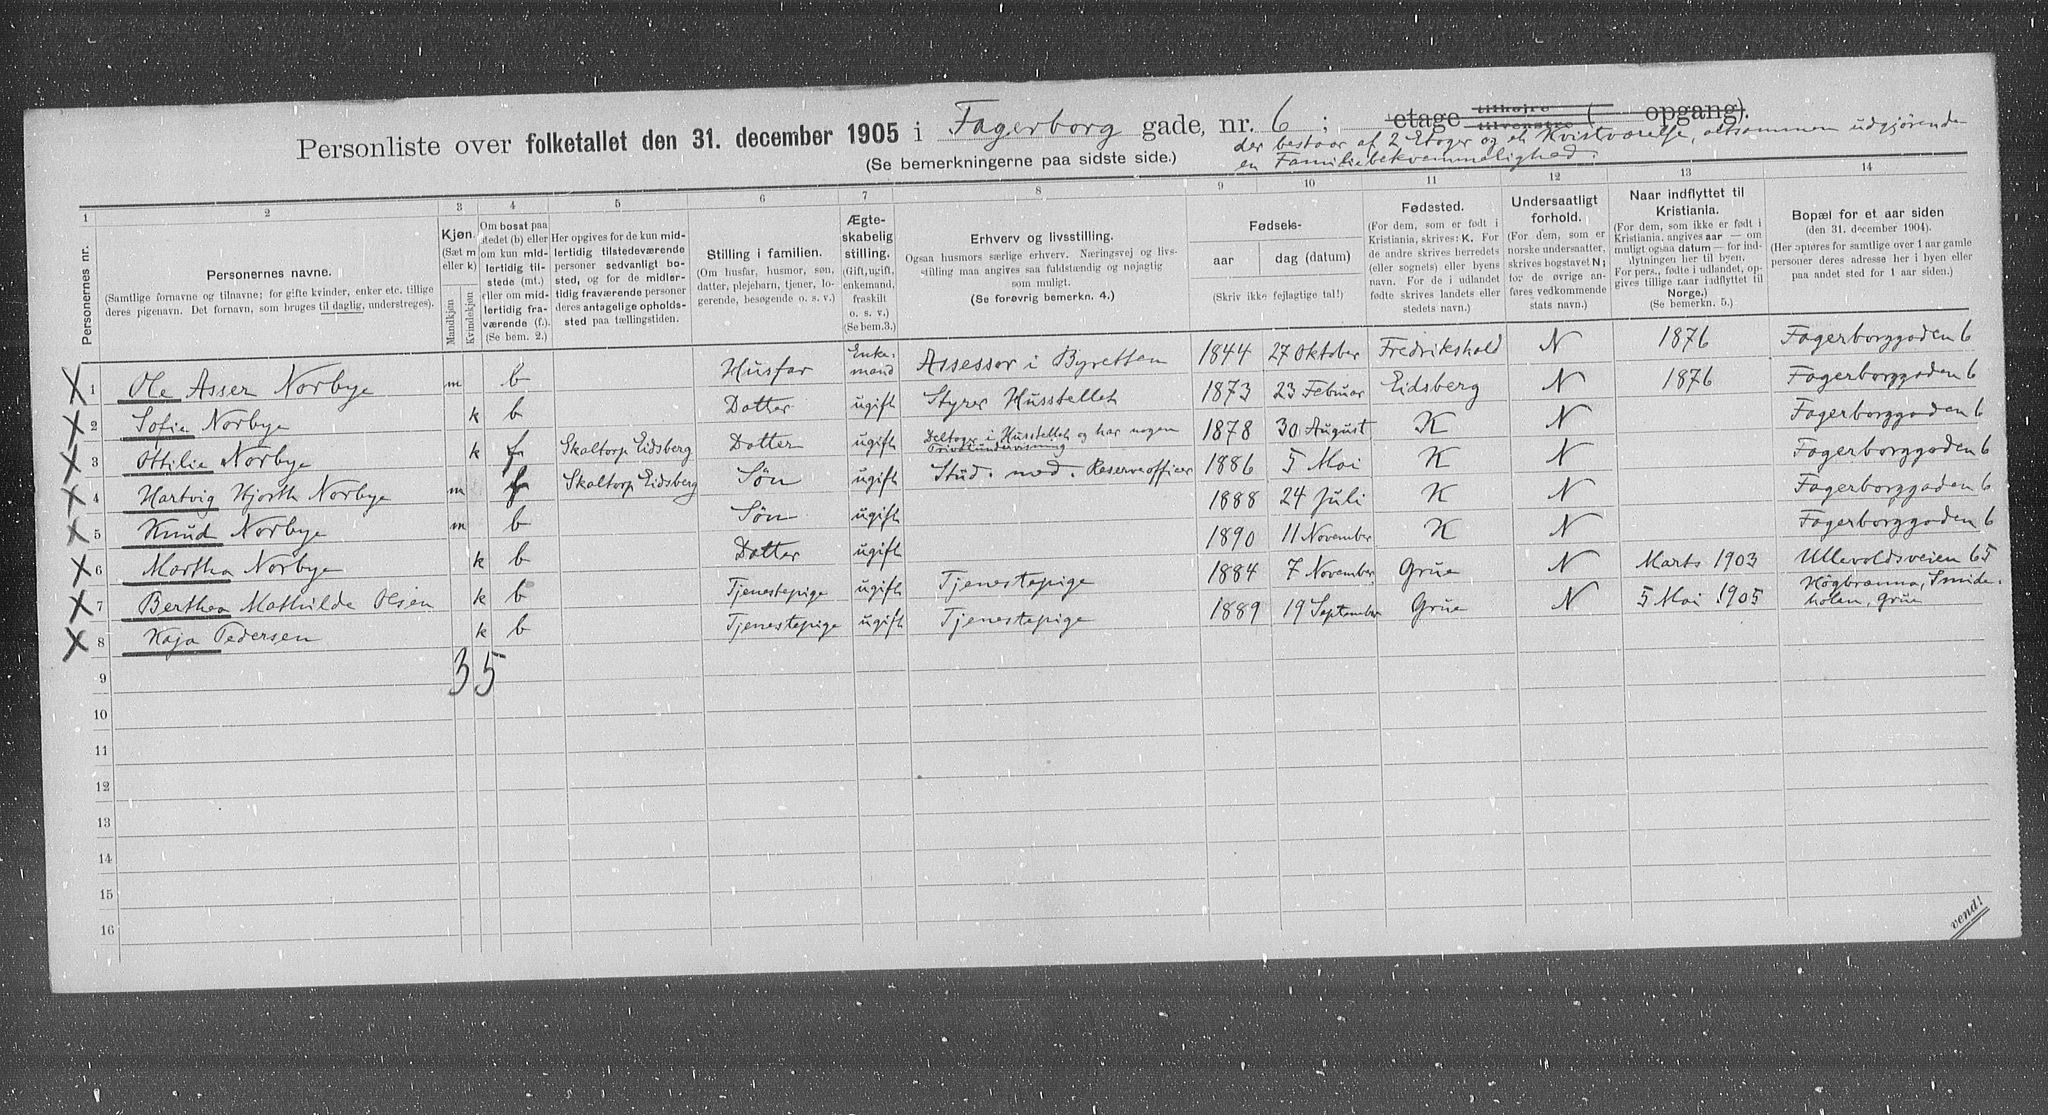 Personliste over folketallet den 31. december 1905 i Fagerborg gade, nr. 6 ; etage tilhøire tilvenstre ( opgang).
(Se bemerkningerne paa sidste side.)
der bestaar af 2 Etager og et Kvistværelse, altsammen udgjørende
en Familiebekvemmelighed.
1 2 3 4 5 6 7 8 9 10 11 12 13 14
Personernes nr.
Personernes navne.
(Samtlige fornavne og tilnavne; for gifte kvinder, enker etc. tillige
deres pigenavn. Det fornavn, som bruges til daglig, understreges).
Kjøn.
(Sæt m
eller k)
Mandkjøn
Kvindekjøn
Om bosat paa
stedet (b) eller
om kun mid-
lertidig til-
stede (mt.)
eller om mid-
lertidig fra-
værende (f.)
(Se bem. 2.)
Her opgives for de kun mid-
lertidig tilstedeværende
personer sedvanlig bo-
sted, og for de midler-
tidig fraværende personer
deres antagelige opholds-
sted paa tællingstiden.
Stilling i familien.
(Om husfar, husmor, søn,
datter, plejebarn, tjener, lo-
gerende, besøgende o. s. v.)
Ægte-
skabelig
stilling.
(Gift, ugift,
enkemand,
fraskilt
o. s. v.)
(Se bem.3.)
Erhverv og livsstilling.
Ogsaa husmors særlige erhverv. Næringsvej og livs-
stilling maa angives saa fuldstændig og nøjagtig
som muligt.
(Se forøvrig bemerkn. 4.)
Fødsels-
aar dag (datum)
(Skriv ikke fejlagtige tal!)
Fødested.
(For dem, som er født i
Kristiania, skrives: K. For
de andre skrives herredets
(eller sognets) eller byens
navn. For de i udlandet
fødte skrives landets eller
stedets navn.)
Undersaatligt
forhold.
(For dem, som er
norske undersaatter,
skrives bogstavet N;
for de øvrige an-
føres vedkommende
stats navn.)
Naar indflyttet til
Kristiania.
(For dem, som ikke er født i
Kristiania, angives aar — om
muligt ogsaa datum — for ind-
flytningen her til byen.
For pers., fødte i udlandet, op-
gives tillige naar indflyttet til
Norge.)
(Se bemerkn. 5.)
Bopæl for et aar siden
(den 31. december 1904).
(Her opføres for samtlige over 1 aar gamle
personer deres adresse her i byen eller
paa andet sted for 1 aar siden.)
X 1 Ole Asser Norbye m b Husfar Enke-mand Assessor i Byretten 1844 27 Oktober Fredrikshald N 1876 Fagerborggaden 6
X 2 Sofie Norbye k b Datter ugift Styrer Husstellet 1873 23 Februar Eidsberg N 1876 Fagerborggaden 6
X 3 Ottilie Norbye k f Skaltorp Eidsberg Datter ugift Deltager i Husstellet og har nogen Privatundervisning 1878 30 August K N Fagerborggaden 6
X 4 Hartvig Hjorth Norbye m f Skaltorp Eidsberg Søn ugift Stud. med. Reserveofficer 1886 5 Mai K N Fagerborggaden 6
X 5 Knud Norbye m b Søn ugift 1888 24 Juli K N Fagerborggaden 6
X 6 Martha Norbye k b Datter ugift 1890 11 November K N Fagerborggaden 6
X 7 Berthea Mathilde Olsen k b Tjenestepige ugift Tjenestepige 1884 7 November Grue N Marts 1903 Ullevoldsveien 65
X 8 Kaja Pedersen k b Tjenestepige ugift Tjenestepige 1889 19 September Grue N 5 Mai 1905 Høgbrænna, Smide-holen, Grue
9 3 5
10
11
12
13
14
15
16
vend!